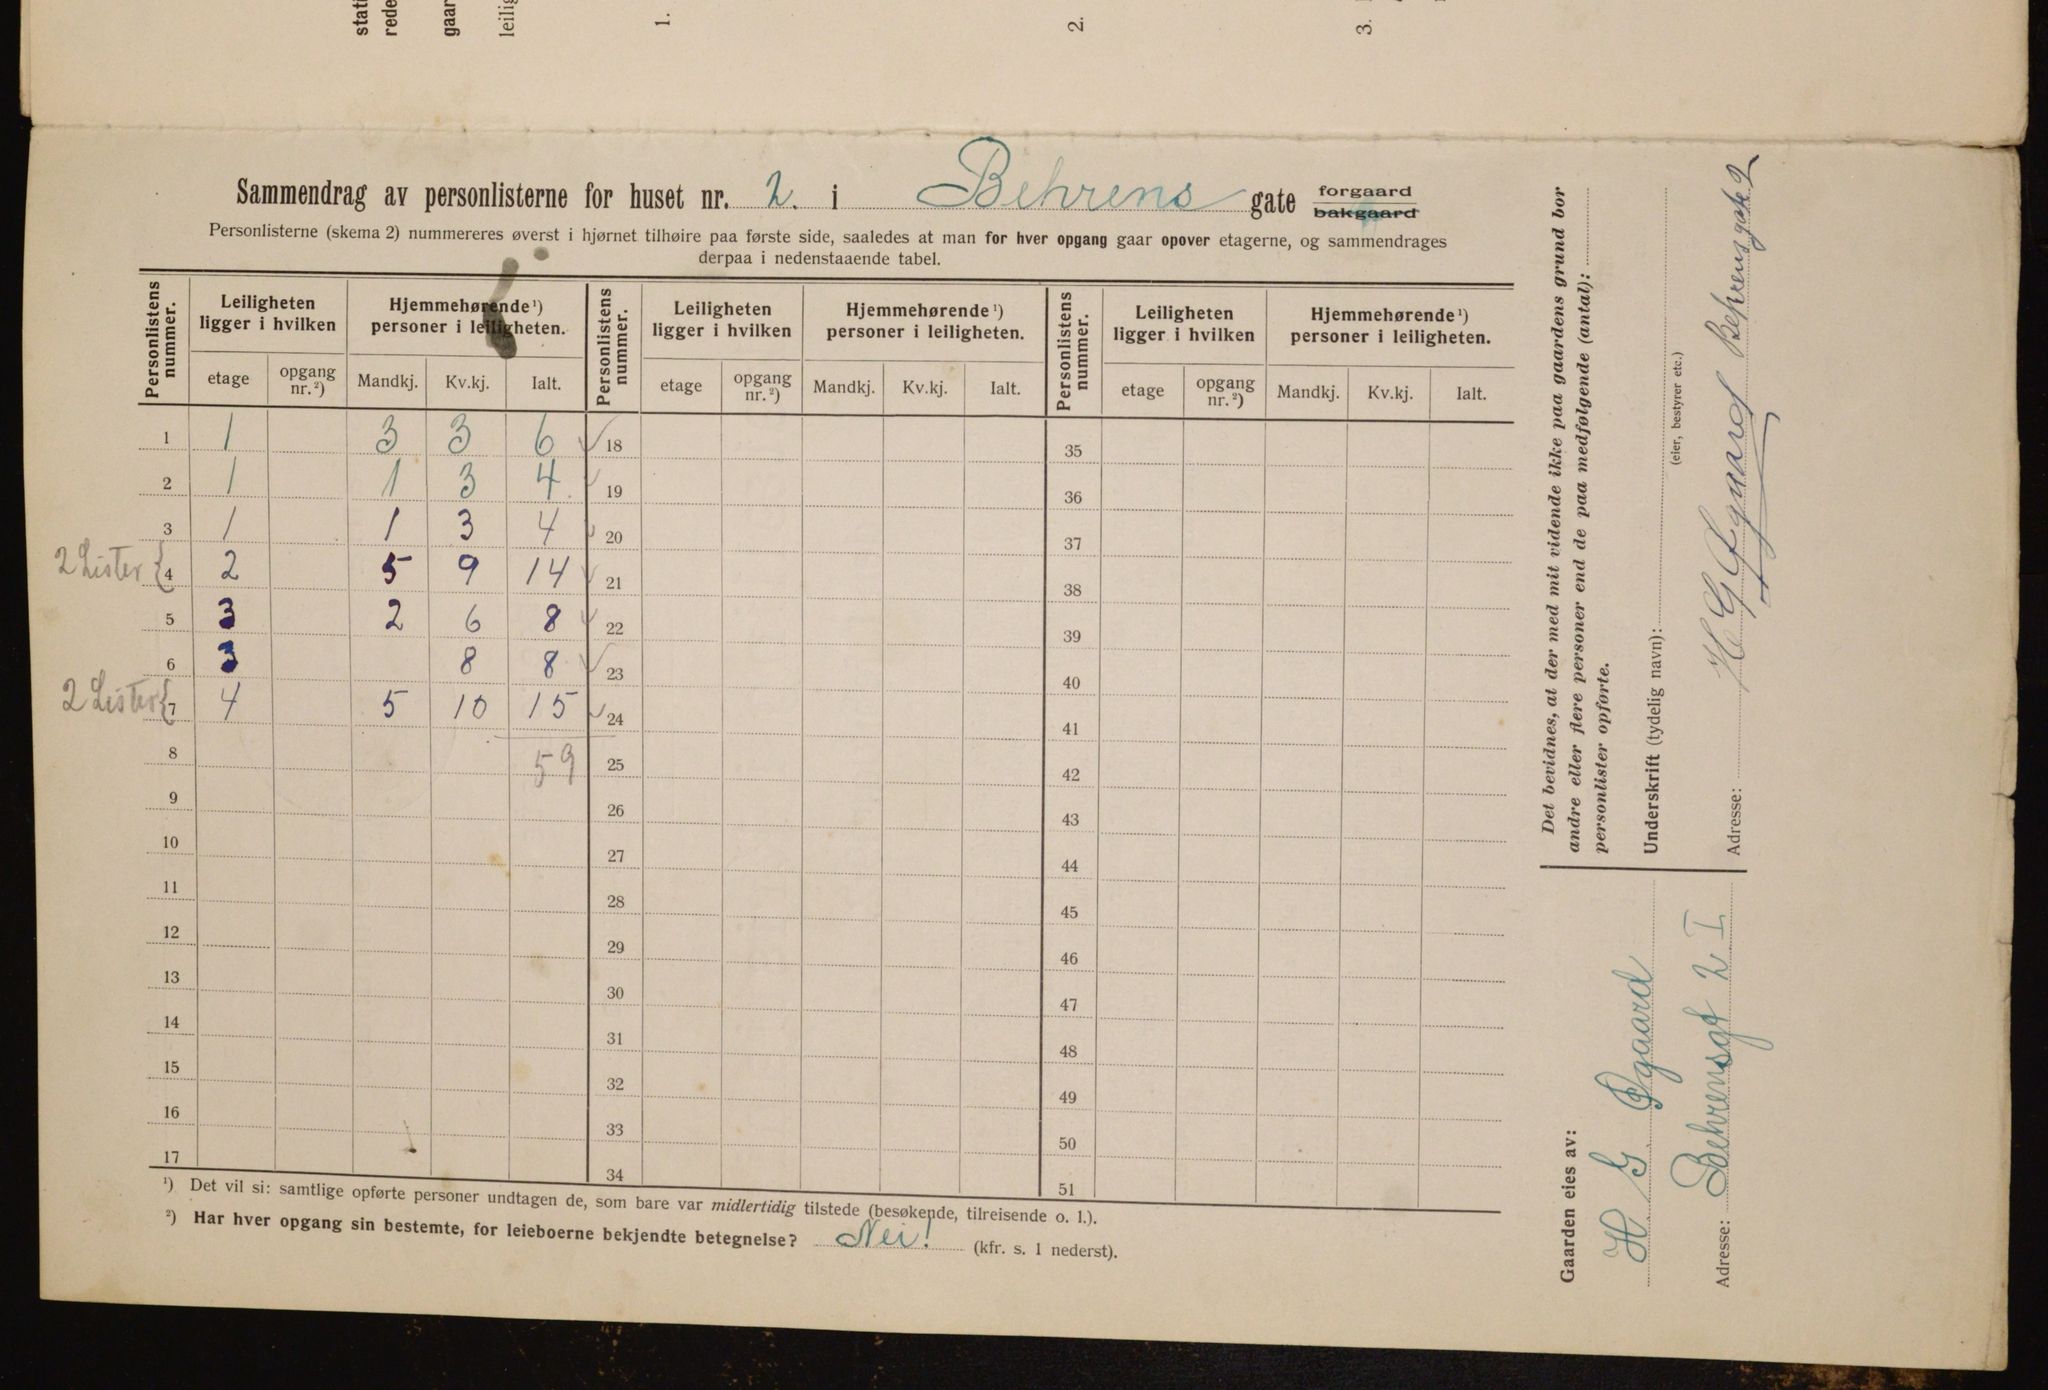 stati
rede
gaar
leilig
1.
2.
3.
Sammendrag av personlisterne for huset nr. 2. i Behrens gate forgaard bakgaard
Personlisterne (skema 2) nummereres øverst i hjørnet tilhøire paa første side, saaledes at man for hver opgang gaar opover etagerne, og sammendrages
derpaa i nedenstaaende tabel.
Personlistens nummer. Leiligheten ligger i hvilken Hjemmehørende¹) personer i leiligheten. Personlistens nummer. Leiligheten ligger i hvilken Hjemmehørende¹) personer i leiligheten. Personlistens nummer. Leiligheten ligger i hvilken Hjemmehørende¹) personer i leiligheten.
etage opgang nr.²) Mandkj. Kv.kj. Ialt. etage opgang nr.²) Mandkj. Kv.kj. Ialt. etage opgang nr.²) Mandkj. Kv.kj. Ialt.
1 1 3 3 6 ✓ 18 35
2 1 1 3 4 ✓ 19 36
3 1 1 3 4 ✓ 20 37
2 Lister { 4 2 5 9 14 ✓ 21 38
5 3 2 6 8 ✓ 22 39
6 3 8 8 ✓ 23 40
2 Lister { 7 4 5 10 15 ✓ 24 41
8 59 25 42
9 26 43
10 27 44
11 28 45
12 29 46
13 30 47
14 31 48
15 32 49
16 33 50
17 34 51
¹) Det vil si: samtlige opførte personer undtagen de, som bare var midlertidig tilstede (besøkende, tilreisende o. l.).
²) Har hver opgang sin bestemte, for leieboerne bekjendte betegnelse? Nei! (kfr. s. 1 nederst).
Det bevidnes, at der med mit vidende ikke paa gaardens grund bor
andre eller flere personer end de paa medfølgende (antal):
personlister opførte.
Underskrift (tydelig navn):
(eier, bestyrer etc.)
H G Øgaard Behrensgate 2
Adresse:
Gaarden eies av:
H G Øgaard
Adresse: Behrensgt 2 I